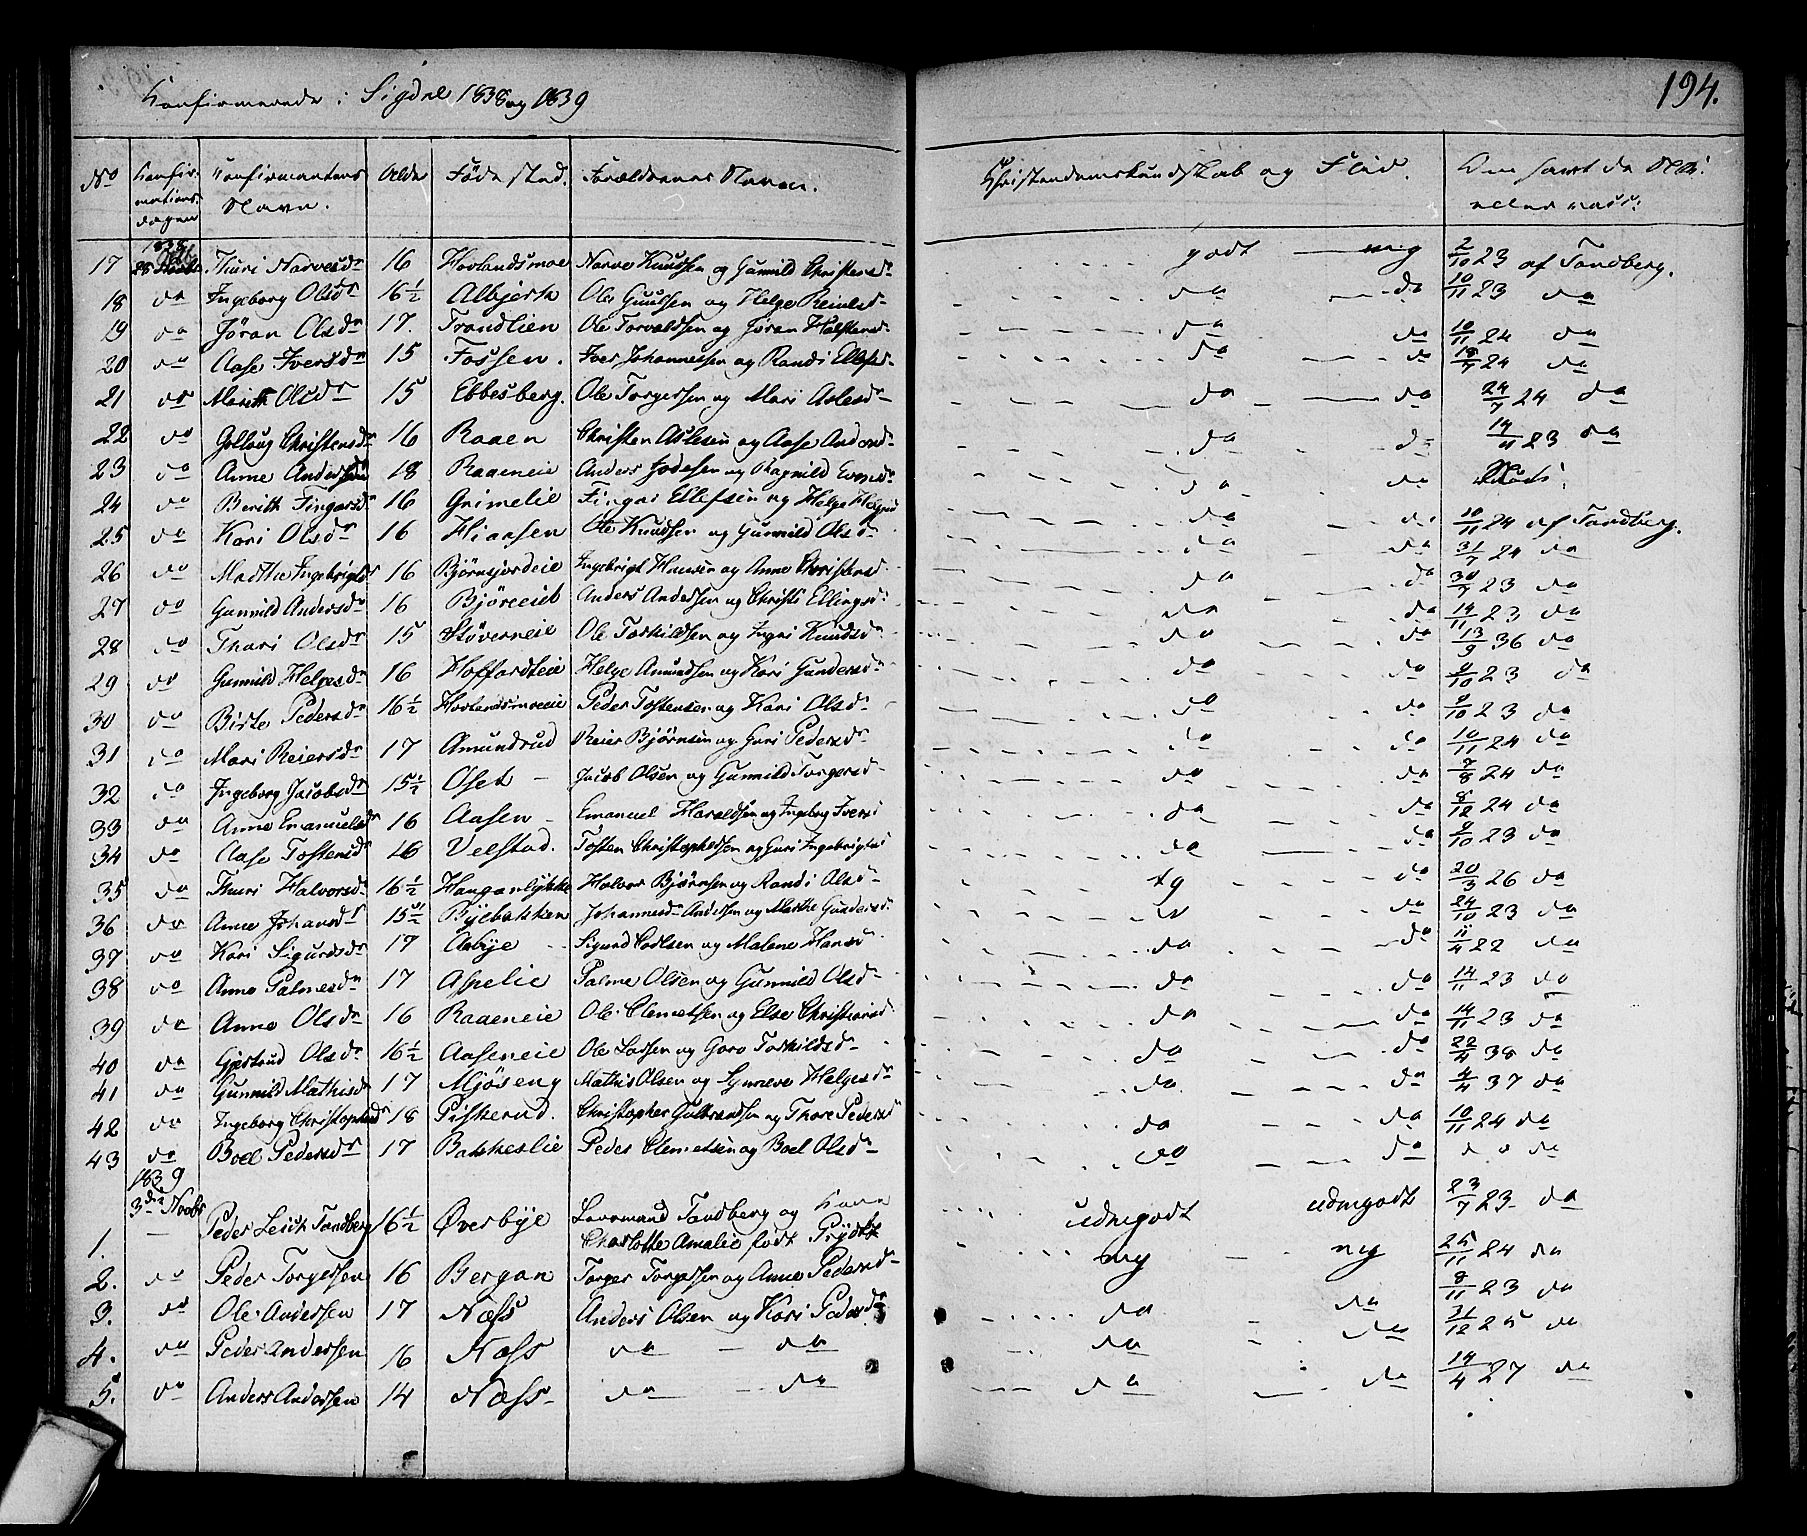 Konfirmerede i Sigdal 1838 og 1839
194.
No Konfirmations dagen Konfirmantens Navn. Alder Føde sted. Forældrenes Navne. Christendomskundskab og Flid. Om samt da
1838
17 28 Octb Thuri Narvesdr 16 Hovlandsmoe Narve Knudsen og Gunnild Christensdr godt mg 2/10 23 af Tandberg.
18 do Ingeborg Olsdr 16½ Albjerk Ole Guulsen og Helge do do 10/11 23 do
19 do Jøran Olsdr 17. Trandlien Ole Torvaldsen og Jøran Halstensd do do 10/11 24 do
20 do Aase Iversdr 15 Fossen. Iver Johannessen og Randi Ellefsd do do 18/7 24 do
21 do Marith Olsdr 15 Ebbesberg. Ole Torgersen og Mari Aslesdr do do 24/7 24 do
22 do Gollaug Christensdr 16 Raaen Christen Aslesen og Aase Andersd do do 14/11 23 do
23 do Anne Andersdr 18 Raaeneie Anders og Ragnild Evensd do do
24 do Berith Fingarsdr 16 Grimelie Fingar Ellefsen og Helge do do 10/11 24 af Tandberg.
25 do Kari Olsdr 16 Hiaasen Ole Knudsen og Gunnild Olsdr do do 31/7 24 do
26 do Marthe Ingebrigtsdr 16 Bjørnsjordeie Ingebrigt Hansen og Anne Christensd do do 30/7 23 do
27 do Gunnild Andersdr 16 Bjøreeiet Anders Andersen og Christi Ellingsd do do 14/11 23 do
28 do Thori Olsdr 15 Støverneie Ole Torkildsen og Ingri Knudsdr do do 13/9 36 do
29 do Gunnild Helgesdr 16 Hoffardteie Helge Amundsen og Kari Gundersdr do do 9/10 23 do
30 do Birte Pedersdr 16½ Hovlandsmoeeie Peder Tostensen og Kari Olsdr do do 9/10 23 do
31 do Mari Reiersdr 17 Amundrud Reier Bjørnsen og Guri Pedersdr do do 10/11 24 do
32 do Ingeborg Jacobsdr 15½ Oset Jacob Olsen og Gunnild Torgersd do do 7/8 24 do
33 do Anne Emanuelsdr 16 Aasen Emanuel Haraldsen og Ingeborg Iversd do do 8/12 24 do
34 do Aase Tostensdr 16 Velstad. Tosten Christophersen og Guri Ingebrigtsd do do 9/10 23 do
35 do Thuri Halvorsdr 16½ Hauganlykke Halvor Bjørnsen og Randi Olsdr tg do 20/3 26 do
36 do Anne Johansdr 15½ Byebakken Johannes Andersen og Marthe Gundersd do 24/10 23 do
37 do Kari Sigurdsdr 17 Aabye Sigurd Carlsen og Malene Hansdr do do 11/4 22 do
38 do Anne Palmesdr 17 Aspelie Palme Olsen og Gunnild Olsdr do do 14/11 23 do
39 do Anne Olsdr 16 Raaeneie Ole Clemetsen og Else Christiansd do do 14/11 23 do
40 do Gjertrud Olsdr 16½ Aaseneie Ole Larsen og Goro Torkildsdr do do 22/4 38 do
41 do Gunnild Mathisdr 17 Mjøseng Mathis Olsen og Synneve Helgesdr do do 4/4 37 do
42 do Ingeborg Christophersdr 18 Piskerud. Christopher Gulbrandsen og Thore Pedersd do do 10/11 24 do
43 do Boel Pedersdr 17 Bakkeslie Peder Clemetsen og Boel Olsdr do do do do
1839
3die Novbr
1. Peder Leich Tandberg 16½ Øverbye Landmand Tandberg og Kone Charlotte Amalie født Prydtz udmgodt udmgodt 23/7 23 do
2. do Peder Torgersen 16 Bergan Torger Torgersen og Anne Pedersdr mg mg 25/11 24 do
3. do Ole Andersen 17 Næss Anders Olsen og Kari Pedersdr do do 8/11 23 do
4. do Peder Andersen 16 Næss do do do do 31/12 25 do
5. do Anders Andersen 14 Næss do do do do 14/4 27 do